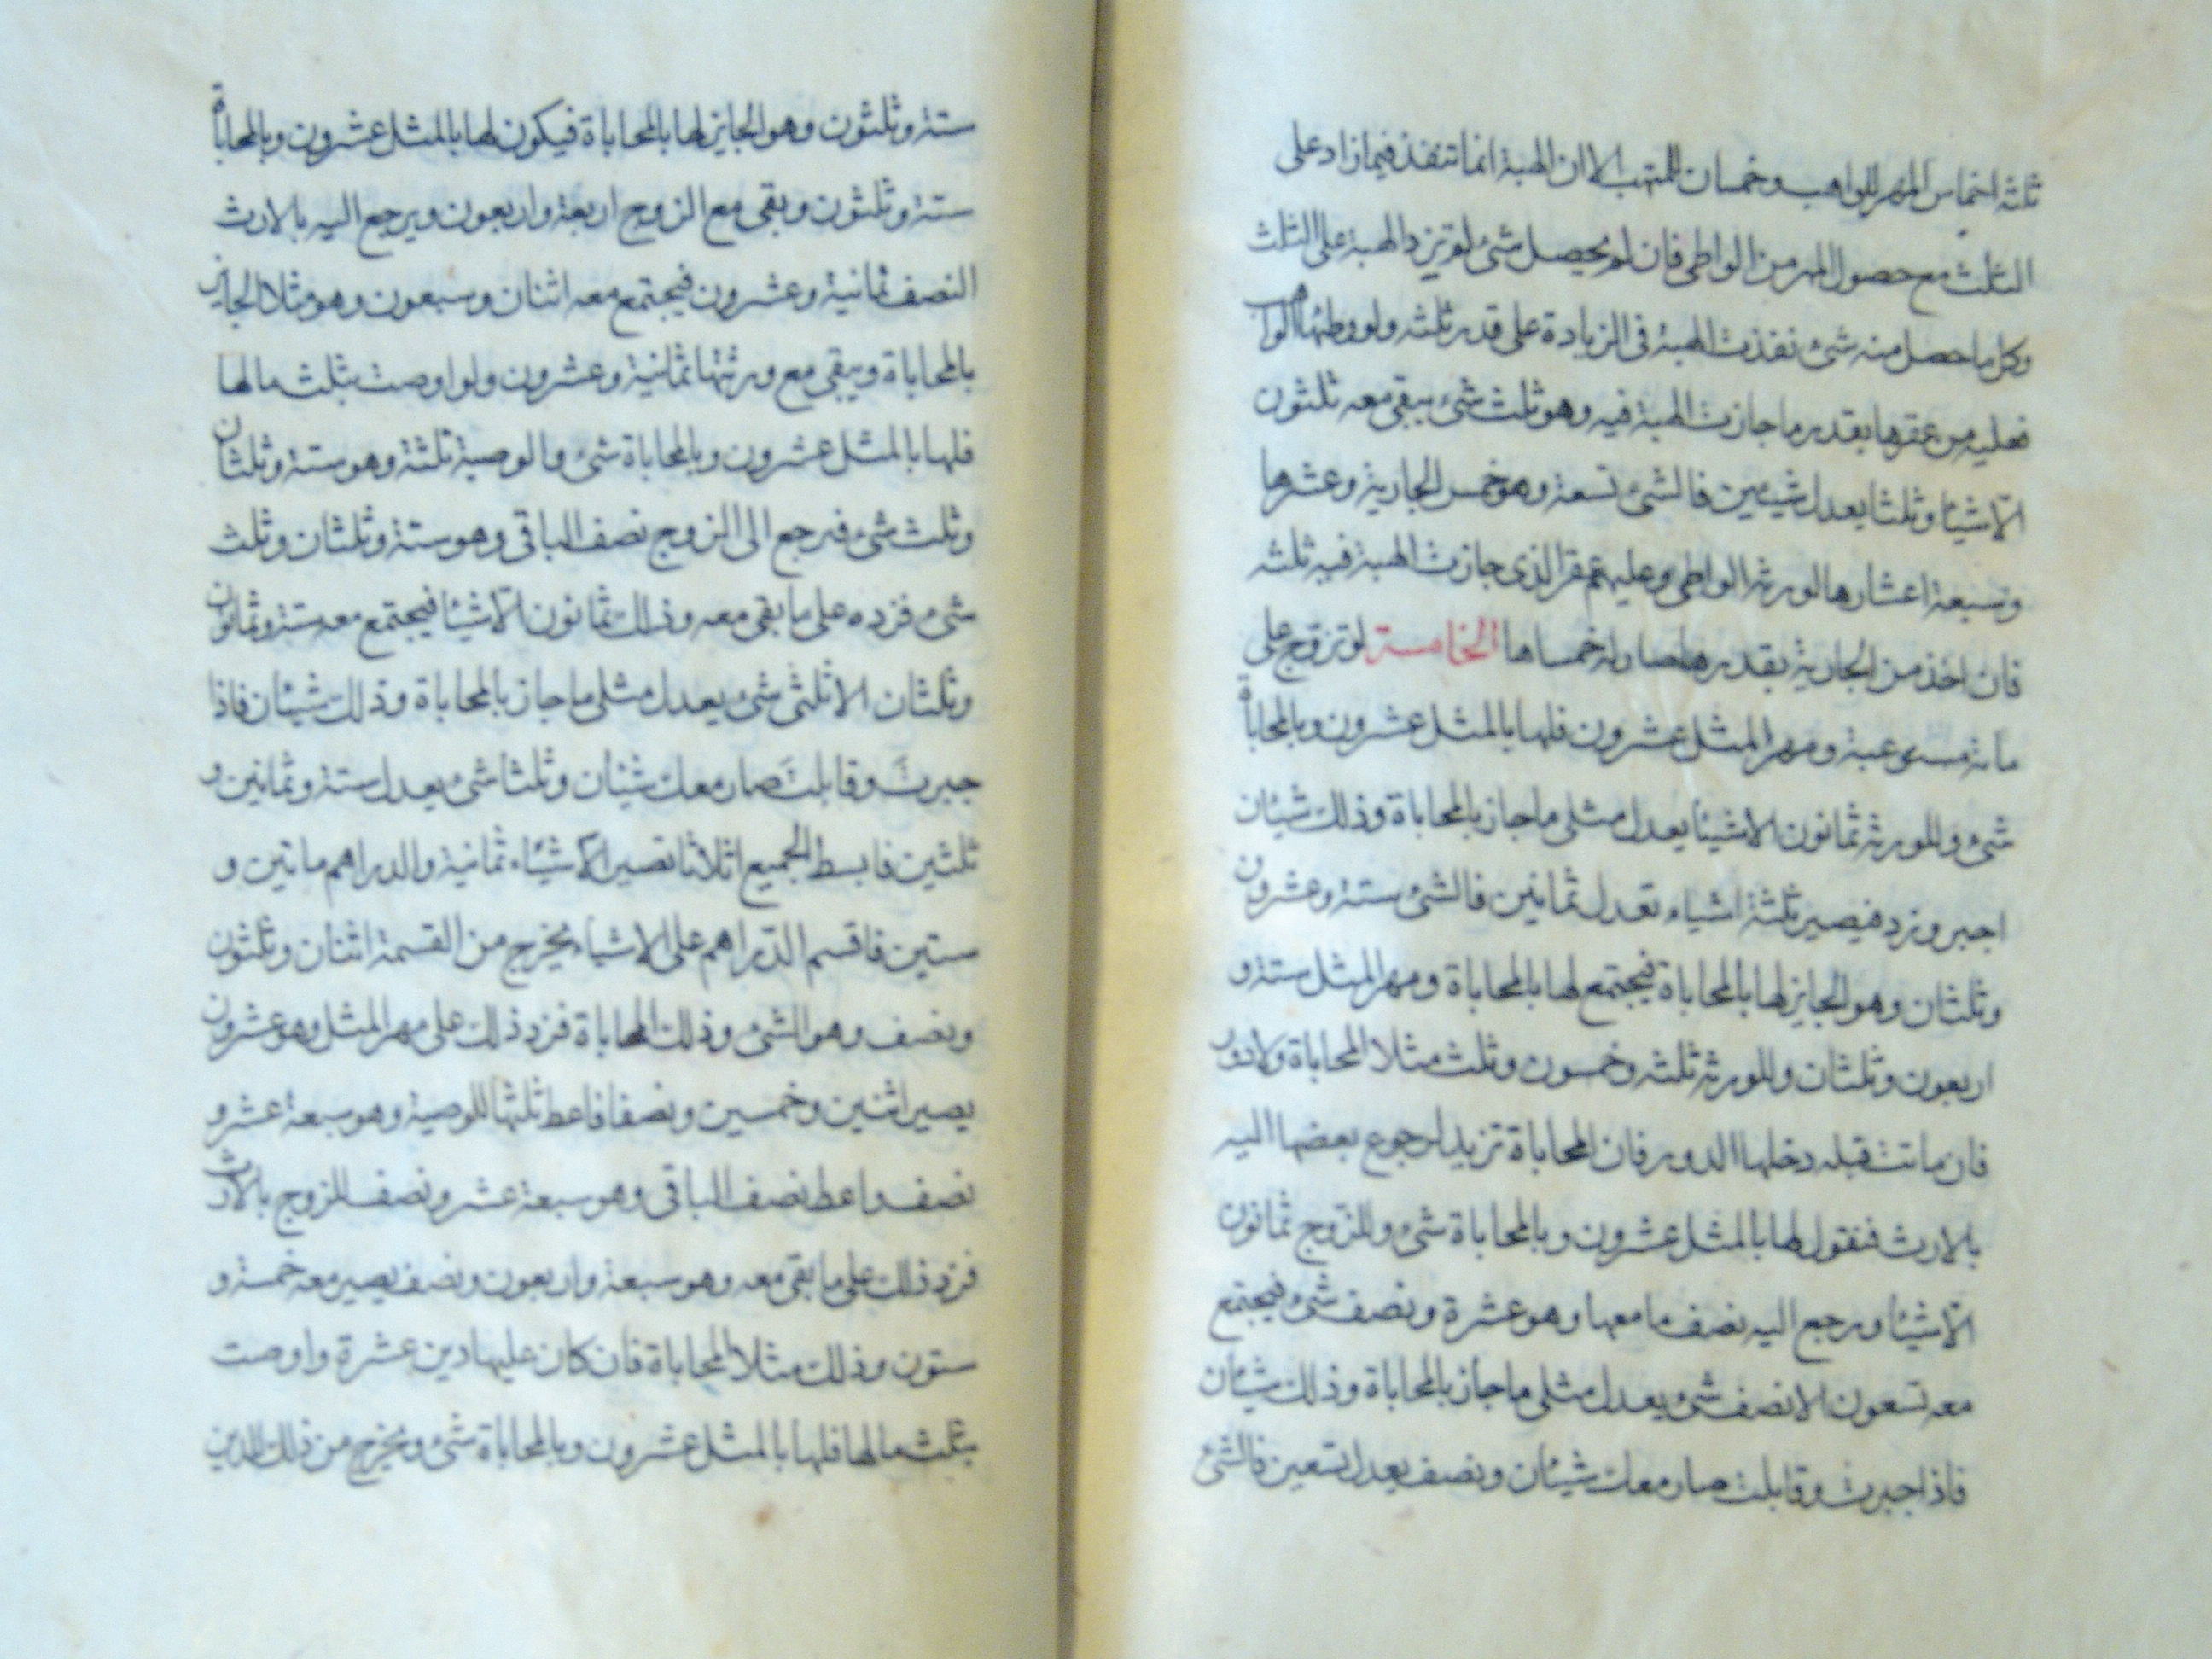 ثلثه اخماس المهر للواهب وخمسان للمتهب الا ان الهبة انما تنفذ فيما زاد على
الثلث مع حصول المهر من الواطى فان لم يحصل شئ لم تزد الهبة على الثلث
وكل ما حصل منه شئ نفذت الهبة فى الزيادة على قدر ثلثه ولو وطئها الواهب
فعليه من عقرها بقدر ما جازت الهبة فيه وهو ثلث شئ يبقى معه ثلثون
الا شيئا وثلثا يعدل شيئين فالشئ تسعة وهو خمس الجارية وعشرها
وسبعة اعشارها لورثه الواطى وعليهم عقر الذى جازت الهبة فيه ثلثه
فان اخذ من الجارية بقدرها صار له خمساها الخامسة لو تزوج على
مائة مستوعبة ومهر المثل عشرون فلها بالمثل عشرون وبالمحاباة
شئ وللورثه ثمانون الا شيئا يعدل مثلى ما جاز بالمحاباة وذلك شيئان
اجبر وزد فيصير ثلثة اشياء تعدل ثمانين فالشئ ستة وعشرون
وثلثان وهو الجايز لها بالمحاباة فيجتمع لها بالمحاباة ومهر المثل ستة و
اربعون وثلثان وللورثه ثلثه وخمسون وثلث مثلا المحاباة ولا دور
فان ماتت قبله دخلها الدور فان المحاباة تزيد لرجوع بعضها اليه
بالارث فنقول لها بالمثل عشرون وبالمحاباة شئ وللزوج ثمانون
الا شيئا ورجع اليه نصف ما معها وهو عشرة ونصف شئ فيجتمع
معه تسعون الا نصف شئ يعدل مثلى ما جاز بالمحاباة وذلك شيئان
فاذا جبرت وقابلت صار معك شيئان ونصف يعدل تسعين فالشئ
ستة وثلثون وهو الجايز لها بالمحاباة فيكون لها بالمثل عشرون وبالمحاباة
ستة وثلثون وبقى مع الزوج اربعة واربعون ويرجع اليه بالارث
النصف ثمانية وعشرون فيجتمع معه اثنان وسبعون وهو مثلا الجايز
بالمحاباة ويبقى مع ورثتها ثمانية وعشرون ولو اوصت بثلث مالها
فلها بالمثل عشرون وبالمحاباة شئ والوصية ثلثة وهو ستة وثلثان
وثلث شئ فيرجع الى الزوج نصف الباقى وهو ستة وثلثان وثلث
شئ فزده على ما بقى معه وذلك ثمانون الا شيئا فيجتمع معه ستة وثمانون
وثلثان الا ثلثى شئ يعدل مثلى ما جاز بالمحاباة وذلك شيئان فاذا
جبرت وقابلت صار معك شيئان وثلثا شئ يعدل ستة وثمانين و
ثلثين فابسط الجميع اثلاثا تصير الاشياء ثمانية والدراهم ماتين و
ستين فاقسم الدراهم على الاشياء يخرج من القسمة اثنان وثلثون
ونصف وهو الشئ وذلك المحاباة فزد ذلك على مهر المثل وهو عشرون
يصير اثنين وخمسين ونصفا فاعط ثلثها للوصية وهو سبعة عشر و
نصف واعط نصف الباقى وهو سبعة عشر ونصف للزوج بالارث
فزد ذلك على ما بقى معه وهو سبعة واربعون ونصف يصير معه خمسة و
ستون وذلك مثلا المحاباة فان كان عليها دين عشرة واوصت
بثلث مالها فلها بالمثل عشرون وبالمحاباة شئ ويخرج من ذلك الدين